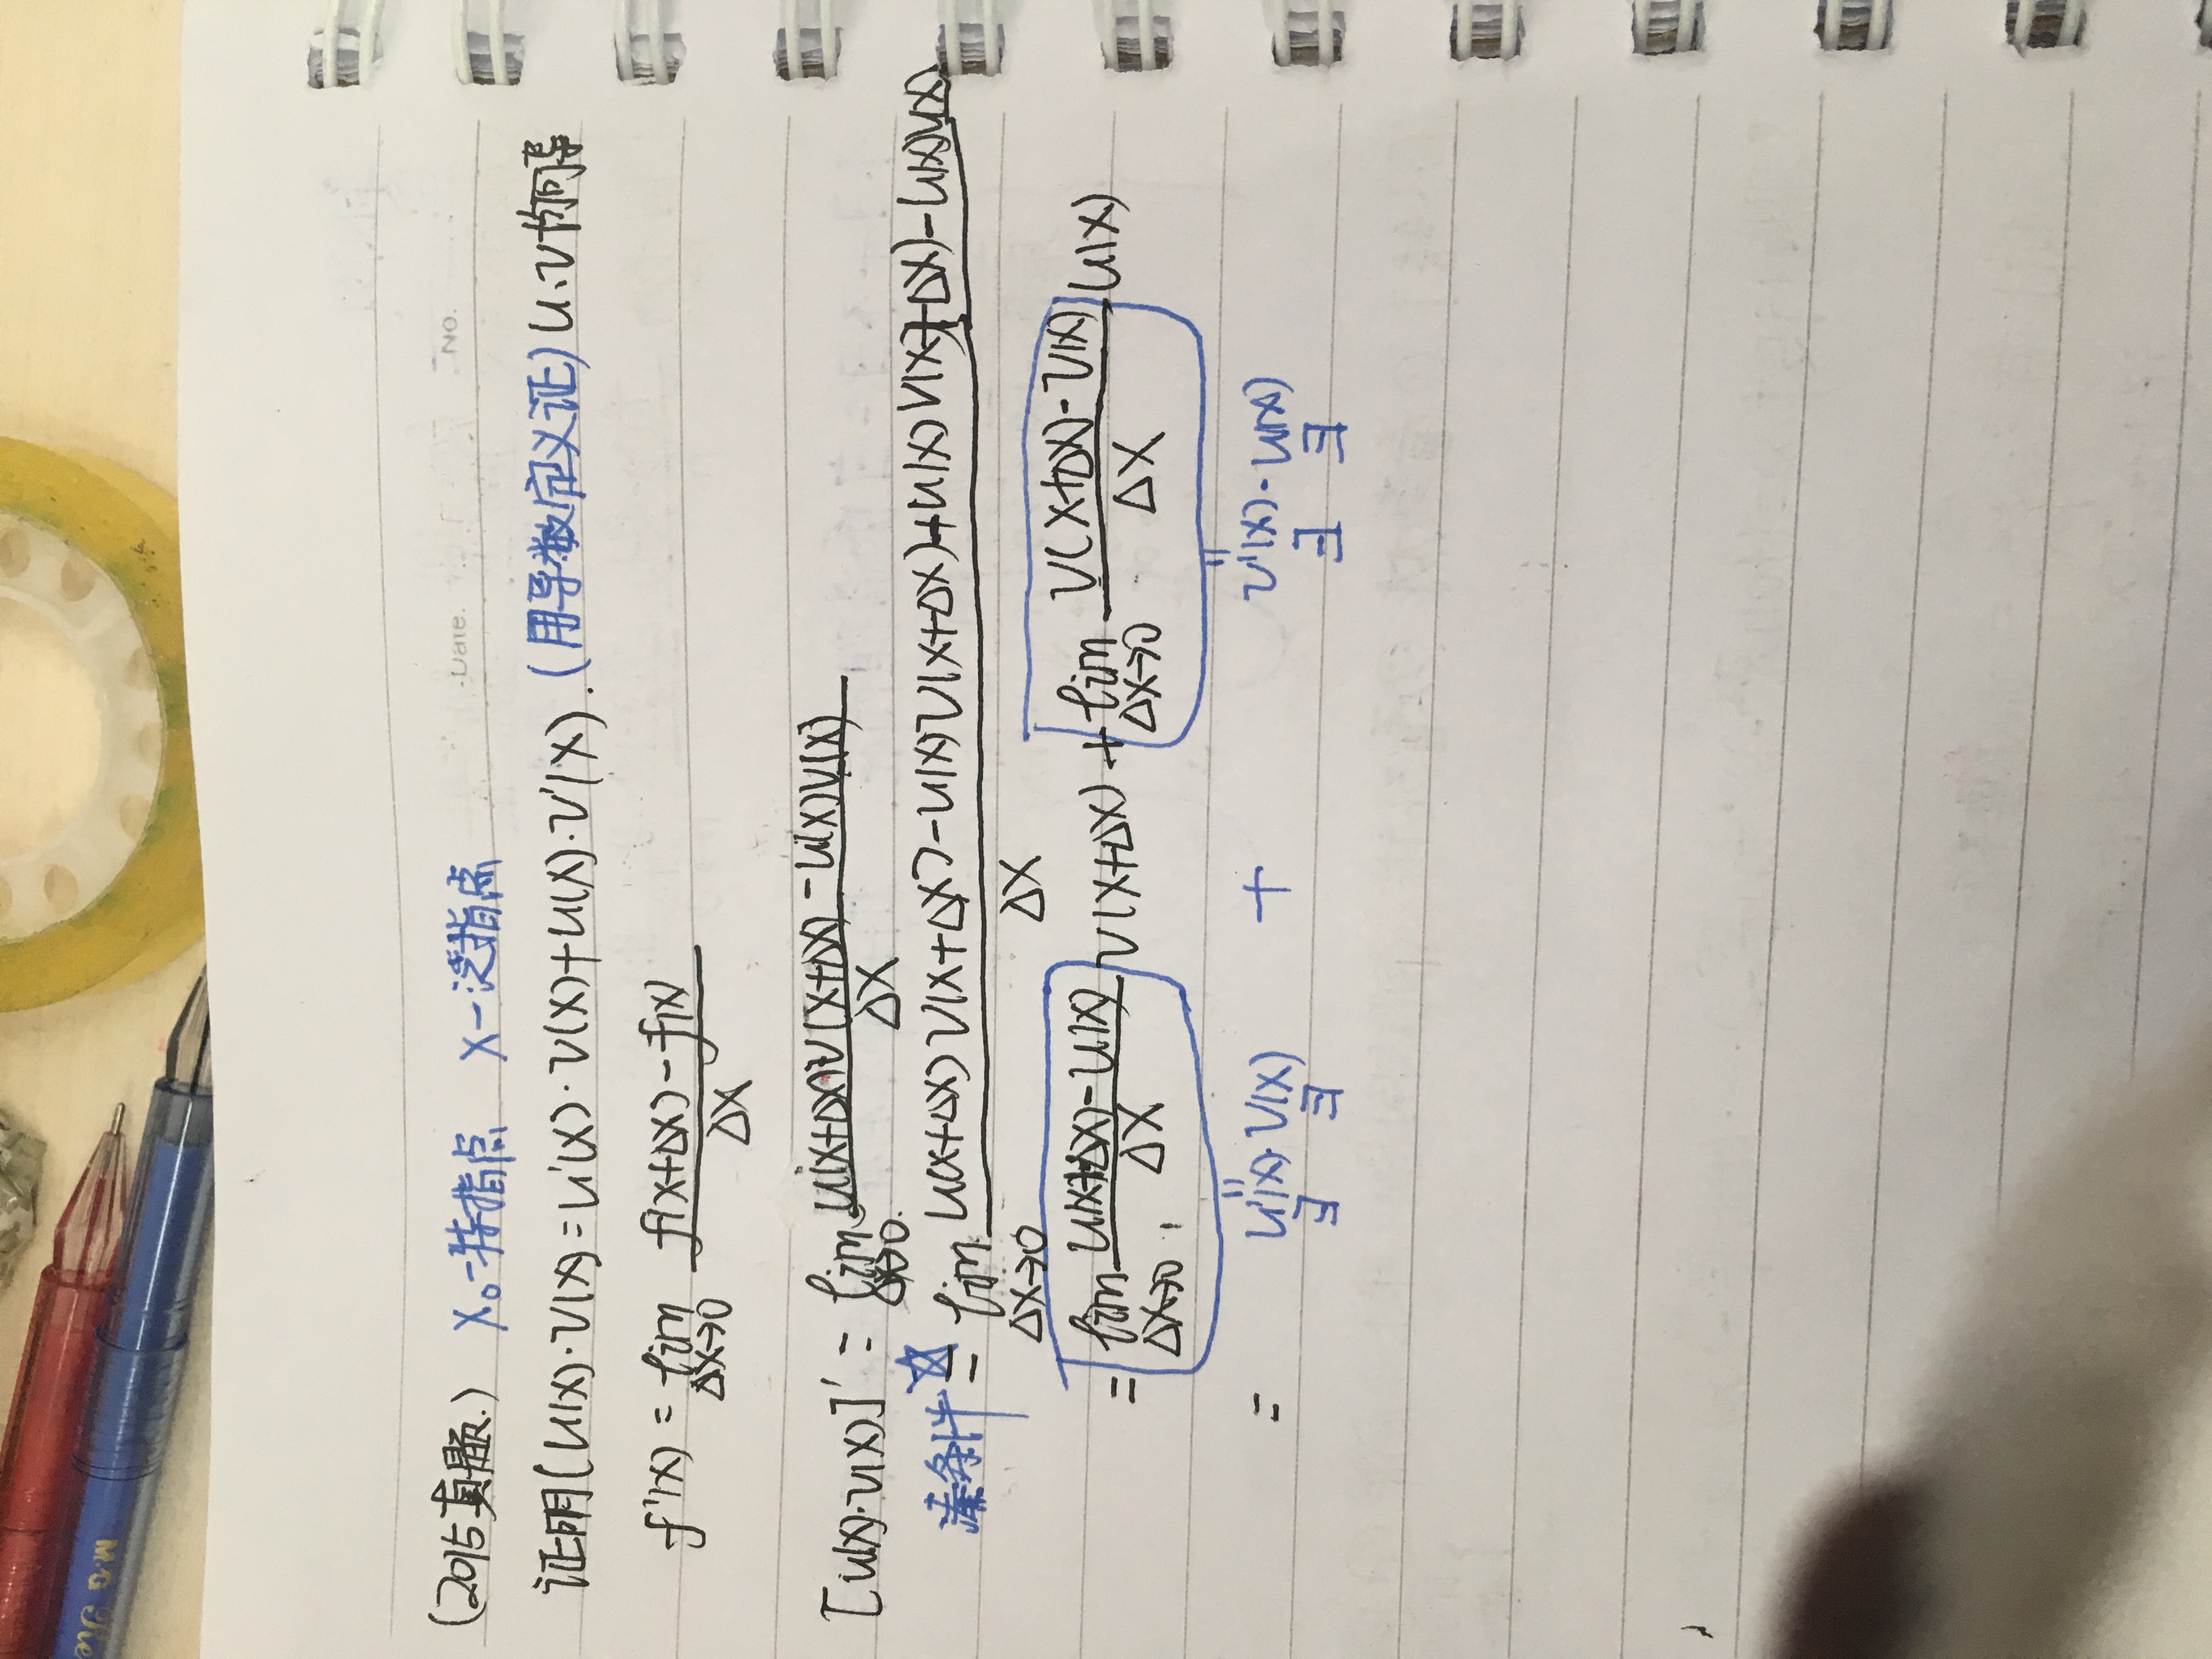 No.
Date.
(2015真题.) X₀-特指点 X-泛指点
证明(u(x)·v(x))=u'(x)·v(x)+u(x)·v'(x). (用导数定义证) u、v均可导
f'(x) = lim Δx→0 f(x+Δx)-f(x) / Δx
[u(x)·v(x)]' = lim Δx→0. u(x+Δx)v(x+Δx)-u(x)v(x) / Δx
凑条件☆ = lim Δx→0 u(x+Δx)v(x+Δx)-u(x)v(x+Δx)+u(x)v(x+Δx)-u(x)v(x) / Δx
= lim Δx→0 u(x+Δx)-u(x) / Δx v(x+Δx) + lim Δx→0 v(x+Δx)-v(x) / Δx u(x)
= u'(x)·v(x) + v'(x)·u(x)
∃ ∃ ∃ ∃
M&G